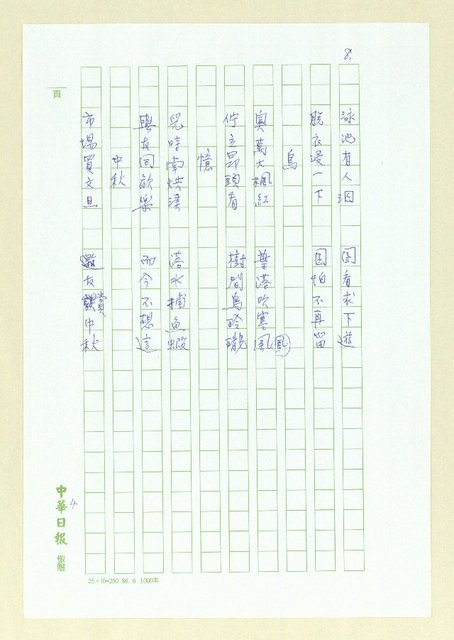 8.
泳池有人泅 因看求下遊
脫衣浸一下 因怕不再留
鳥
奧萬大楓紅 普港吹寒風
佇立昂頭看 樹間鳥玲瓏
憶
兒時南烘渓 落水捕魚蝦
與友同歡樂 而今不想這
中秋
市場買文旦 邀友賞中秋
頁
中華日報
25×10=250 86. 6 1000本